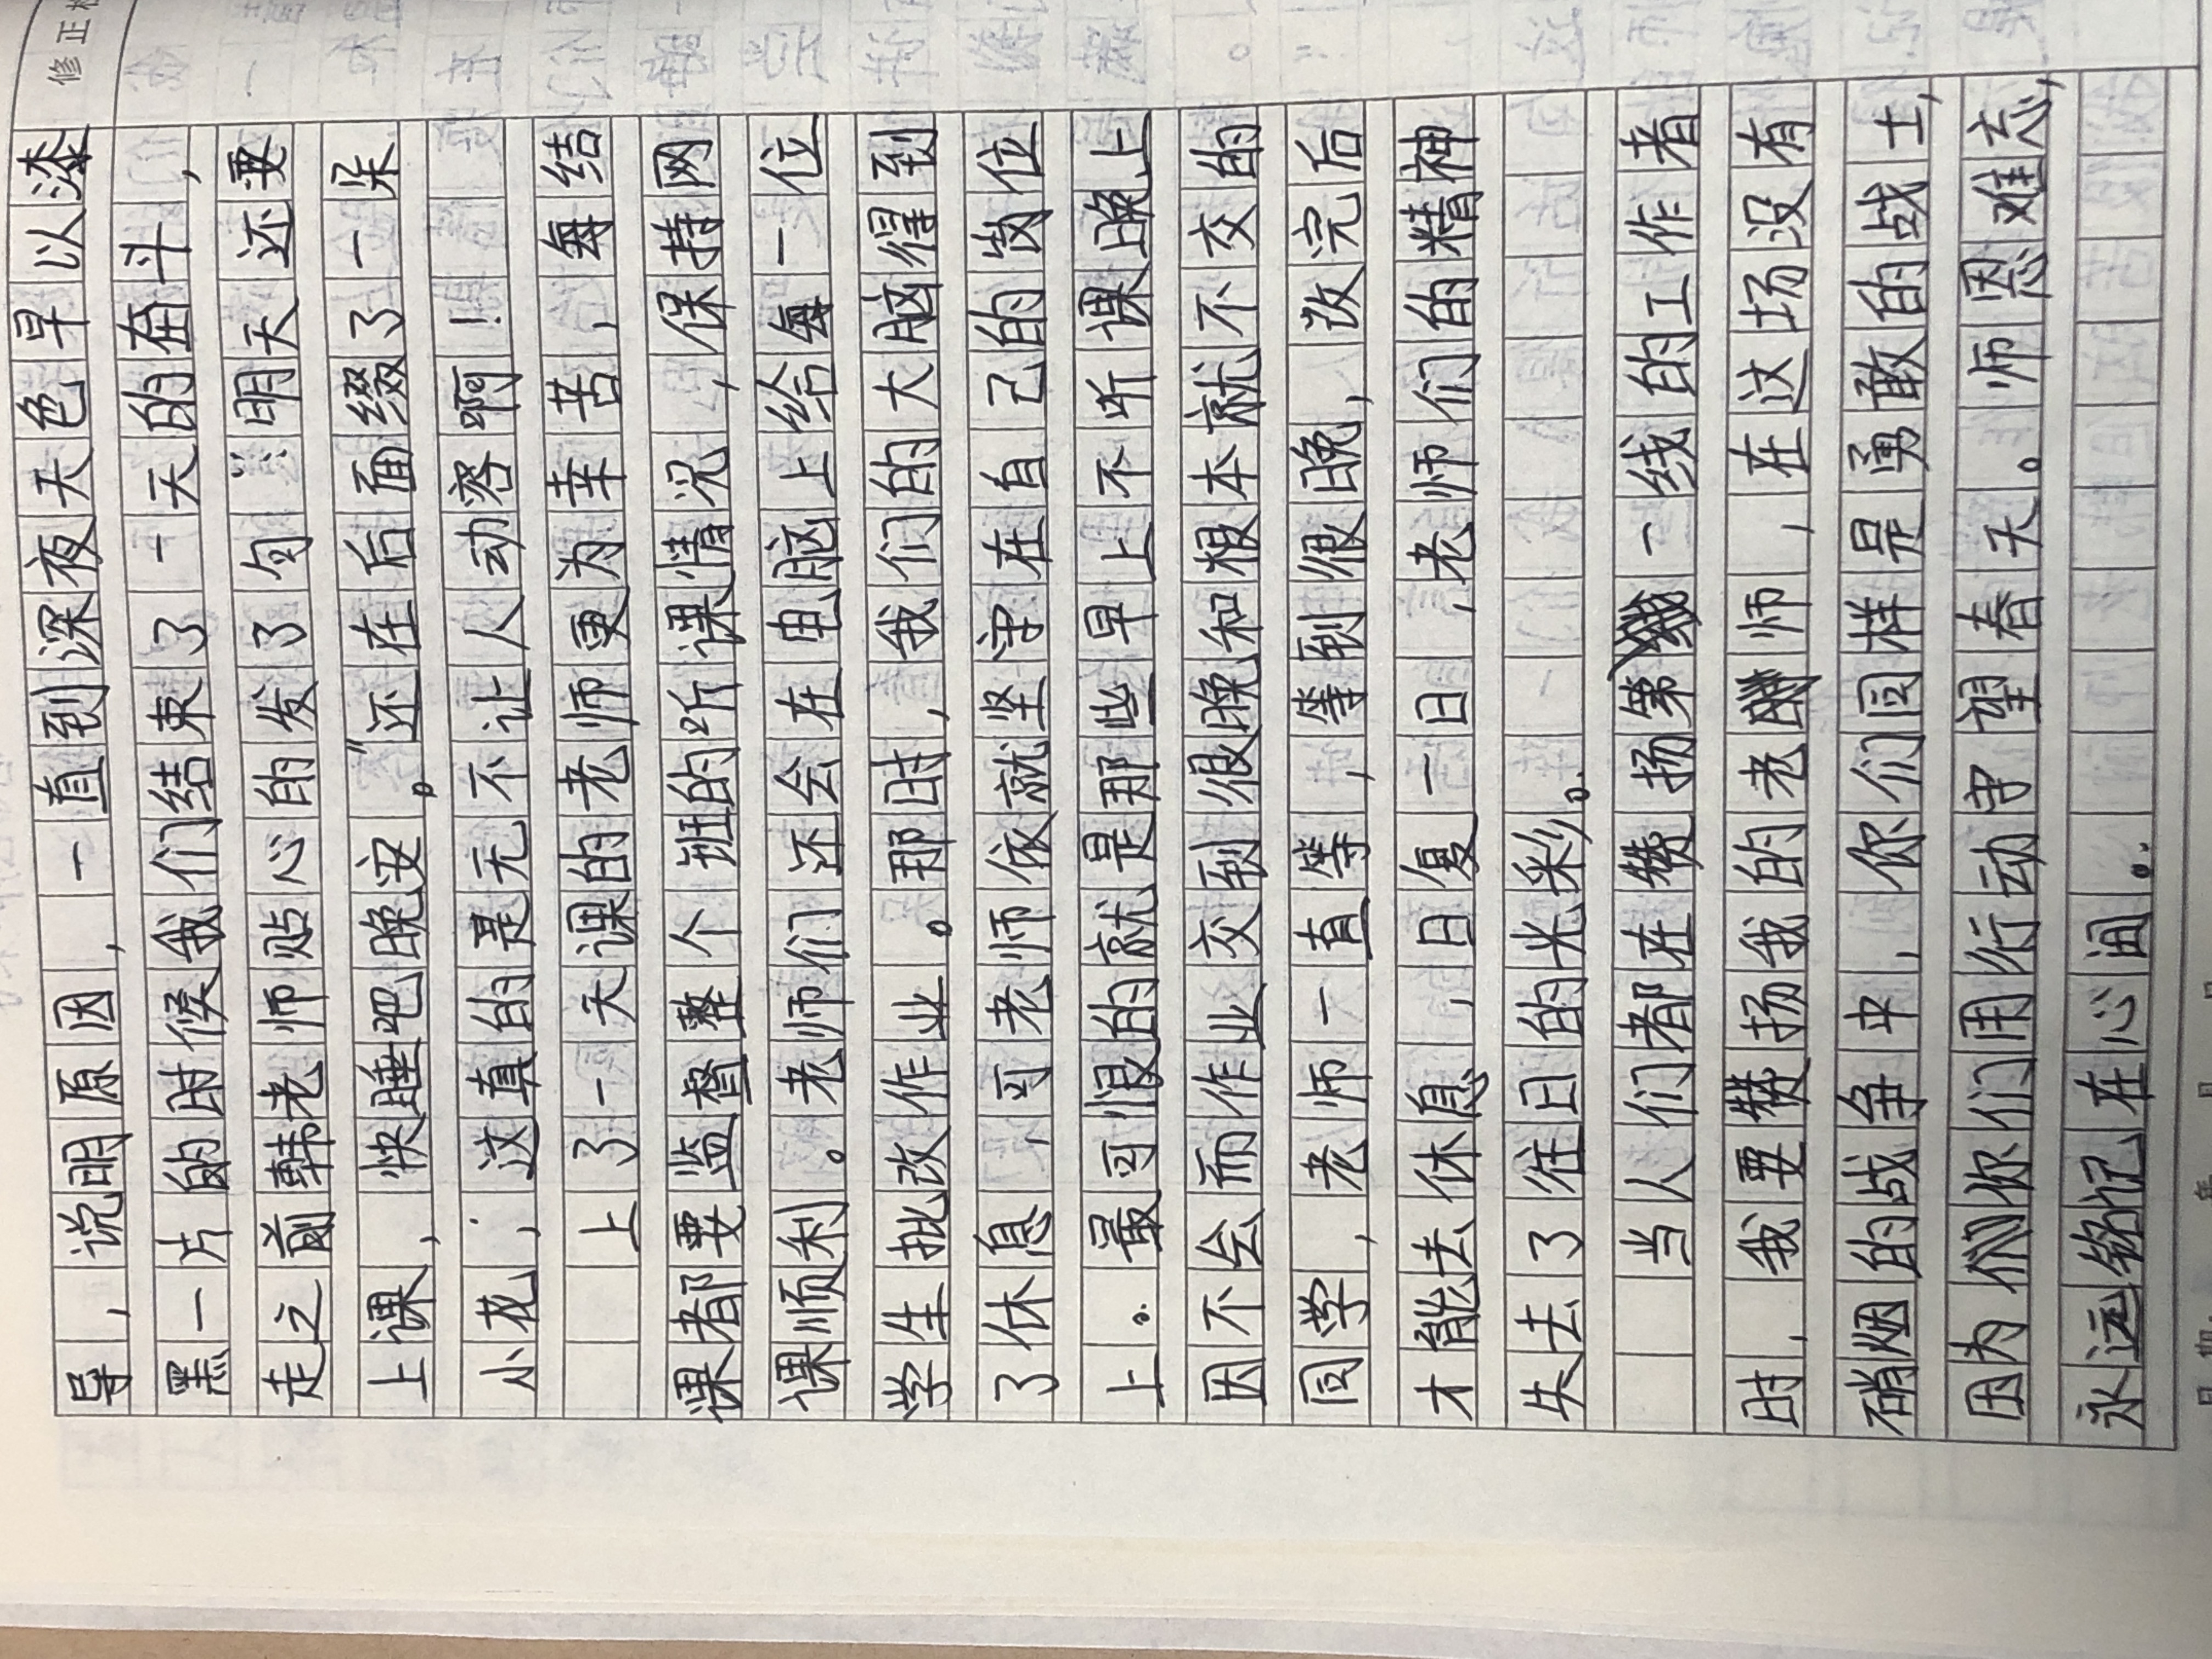 修正栏
导，说明原因，一直到深夜天色早以漆
黑一片的时候我们结束了一天的奋斗，
走之前韩老师贴心的发了句：“明天还要
上课，快睡吧晚安。”还在后面缀了一朵
小花，这真的是无不让人动容啊！
上了一天课的老师更为辛苦，每结
课都要监督整个班的听课情况，保持网
课顺利。老师们还会在电脑上给每一位
学生批改作业。那时，我们的大脑得到
了休息，可老师依就坚守在自己的岗位
上。最可恨的就是那些早上不听课晚上
因不会而作业交到很晚和根本就不交的
同学，老师一直等，等到很晚，改完后
才能去休息，日复一日，老师们的精神
失去了往日的光彩。
当人们都在赞扬第一线的工作者
时，我要赞扬我的老师，在这场没有
硝烟的战争中，你们同样是勇敢的战士，
因为你们用行动守望春天。师恩难忘，
永远铭记在心间。